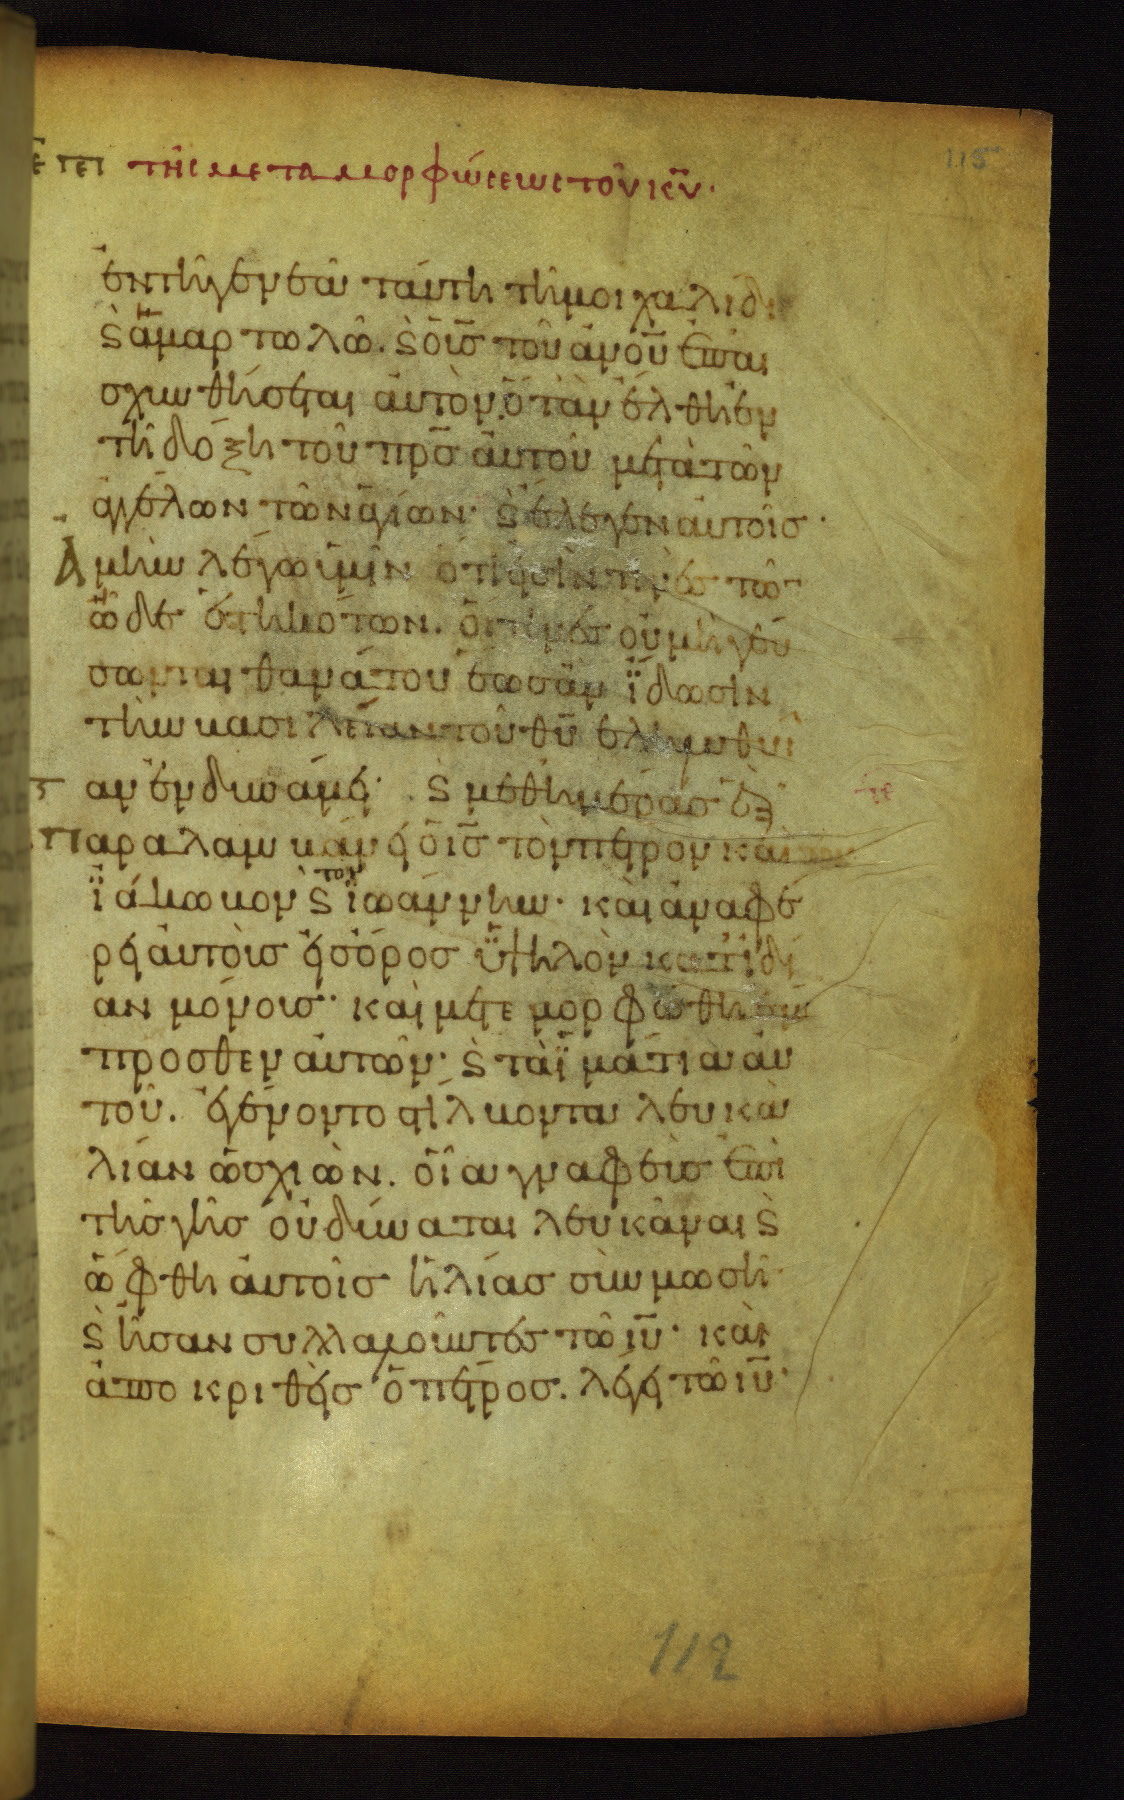 τῆς μεταμορφώσεως τοῦ κῦ.
115
ἐν τῆ γενεᾶ ταύτη τῆ μοιχαλίδι
ϗ ἁμαρτωλῶ. ϗ ὁ υἱὸς τοῦ ἀνοῦ ἐπαι
σχυνθήσεται αὐτὸν. ὅταν ἔλθη ἐν
τῆ δόξη τοῦ πρς αὐτοῦ μετὰ τῶν
ἀγγέλων τῶν ἁγίων. ϗ ἔλεγεν αὐτοῖς.
Ἀμὴν λέγω ὑμῖν ὅτι εἰσὶν τινὲς τῶν
ὧδε ἑστηκότων. οἵτινες οὐ μὴ γεύ
σωνται θανάτου ἕως ἂν ἴδωσιν
τὴν βασιλείαν τοῦ θῦ ἐληλυθυῖ
αν ἐν δυνάμει. ϗ μεθ ἡμέρας ἓξ
Παραλαμβάνει ὁ ις τὸν πέτρον καὶ τὸν
ἰάκωβον ϗ τὸν ἰωάννην. καὶ ἀναφέ
ρει αὐτοὺς εἰς ὄρος ὑψηλὸν κατ ἰδί
αν μόνους. καὶ μετεμορφώθη ἔμ
προσθεν αὐτῶν. ϗ τὰ ἱμάτια αὐ
τοῦ. ἐγένοντο στίλβοντα λευκὰ
λίαν ὡς χιὼν. οἷα γναφεὺς ἐπὶ
τῆς γῆς οὐ δύναται λευκᾶναι ϗ
ὤφθη αὐτοῖς ἠλίας σὺν μωσῆ
ϗ ἦσαν συλλαλοῦντες τῶ ιυ. καὶ
ἀποκριθεὶς ὁ πέτρος. λέγει τῶ ιυ.
112